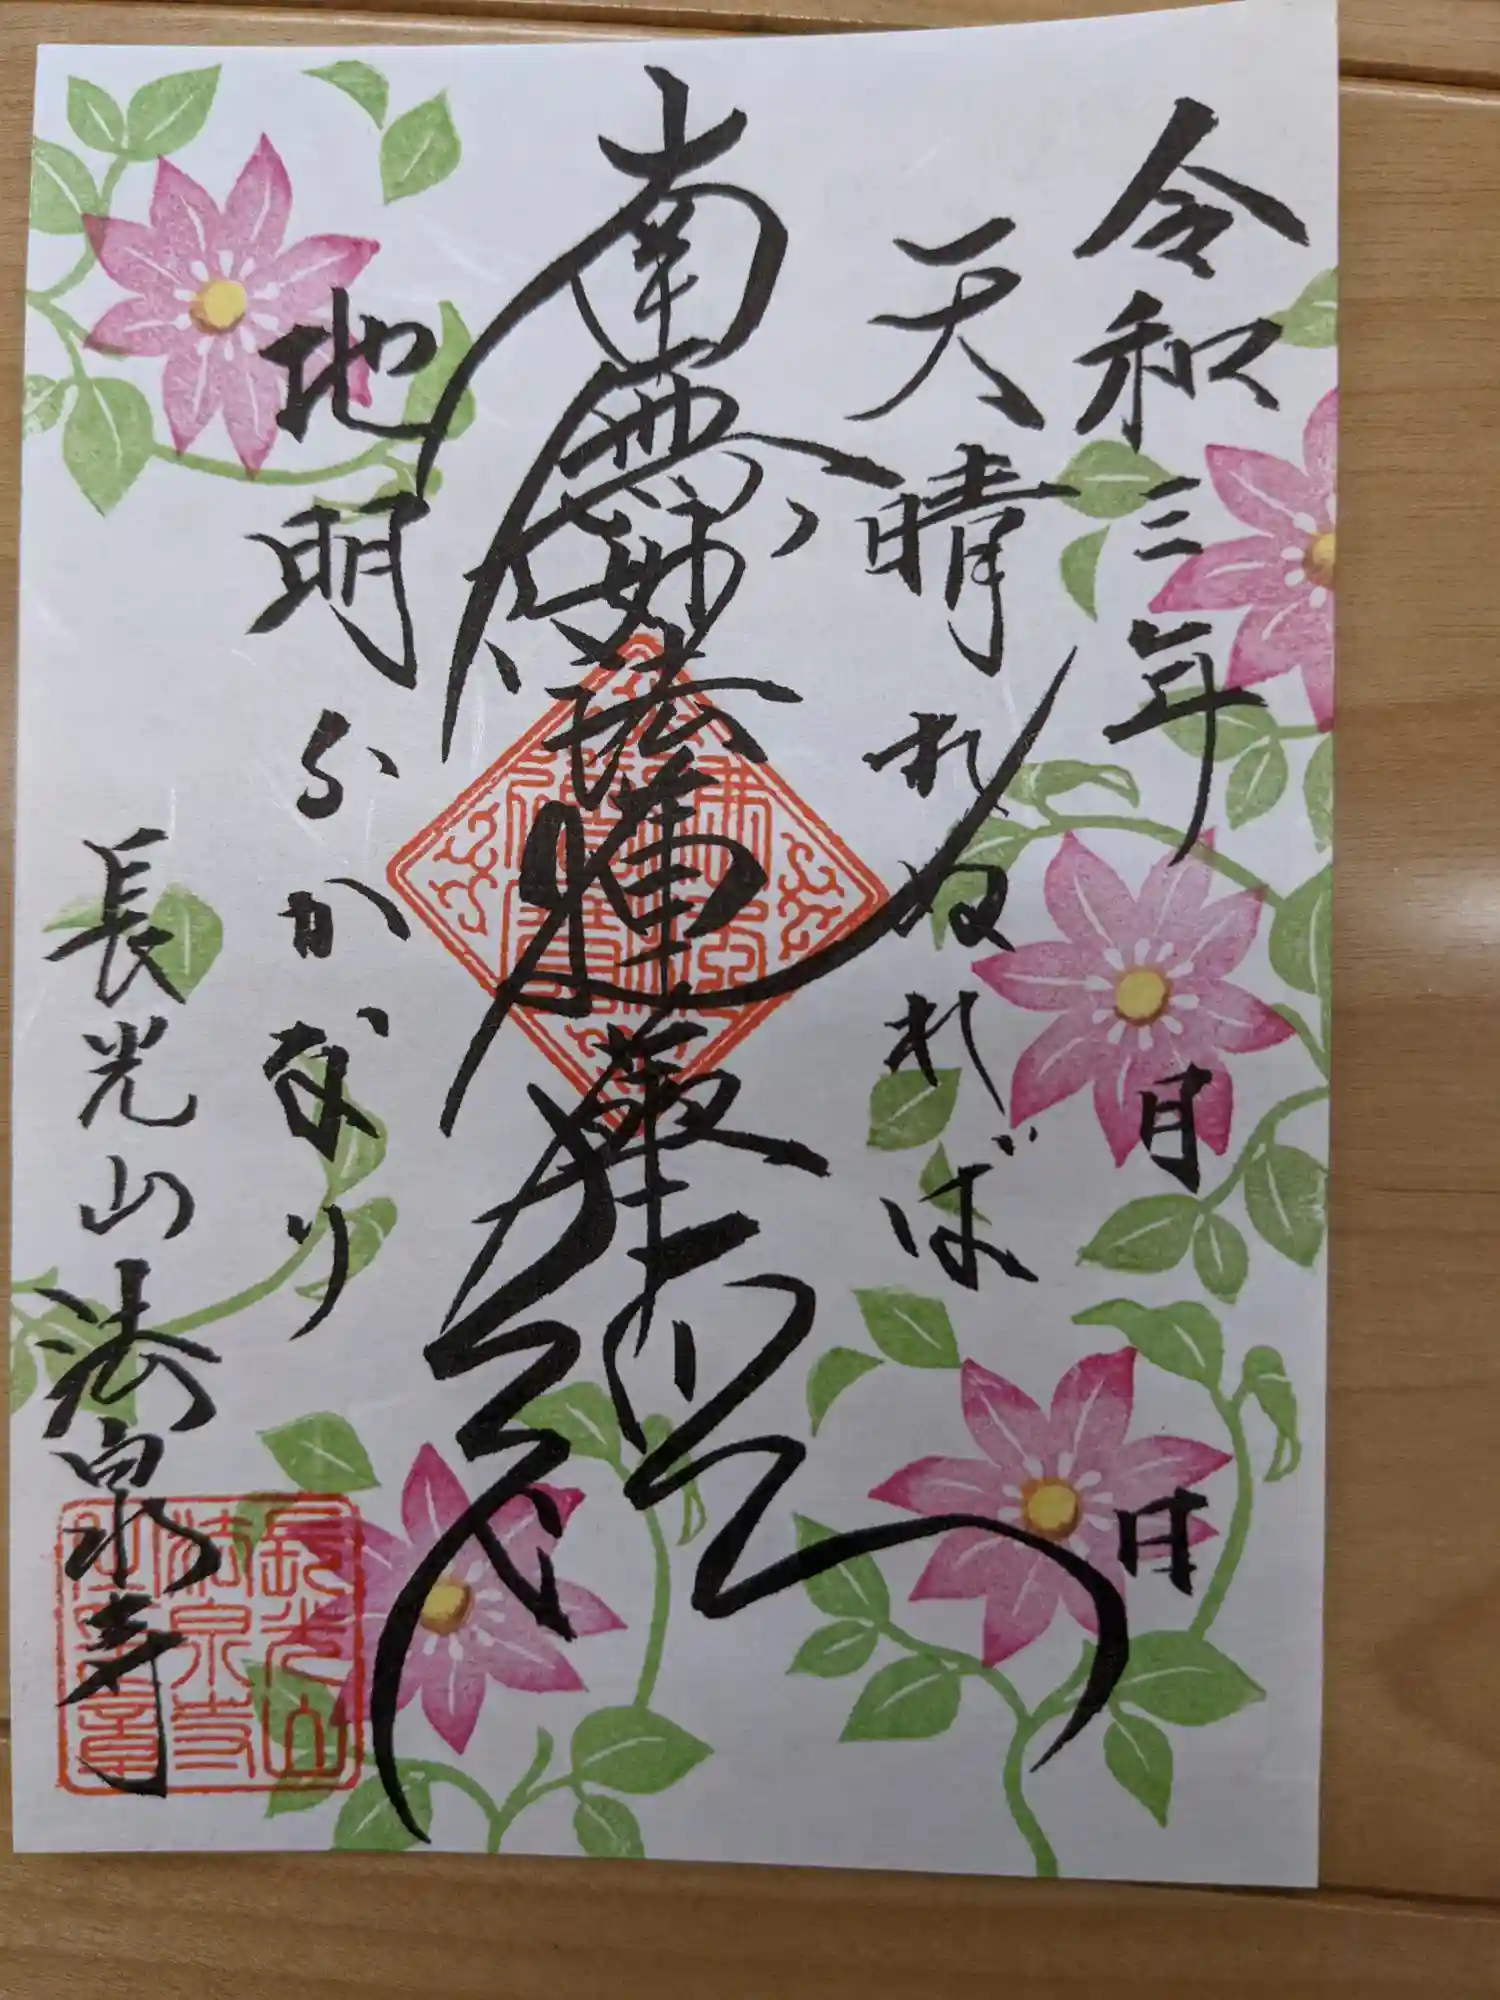 令和三年 月 日
天晴れぬれば
南無妙法蓮華経
地明らかなり
長光山 法泉寺
長光山
法泉寺